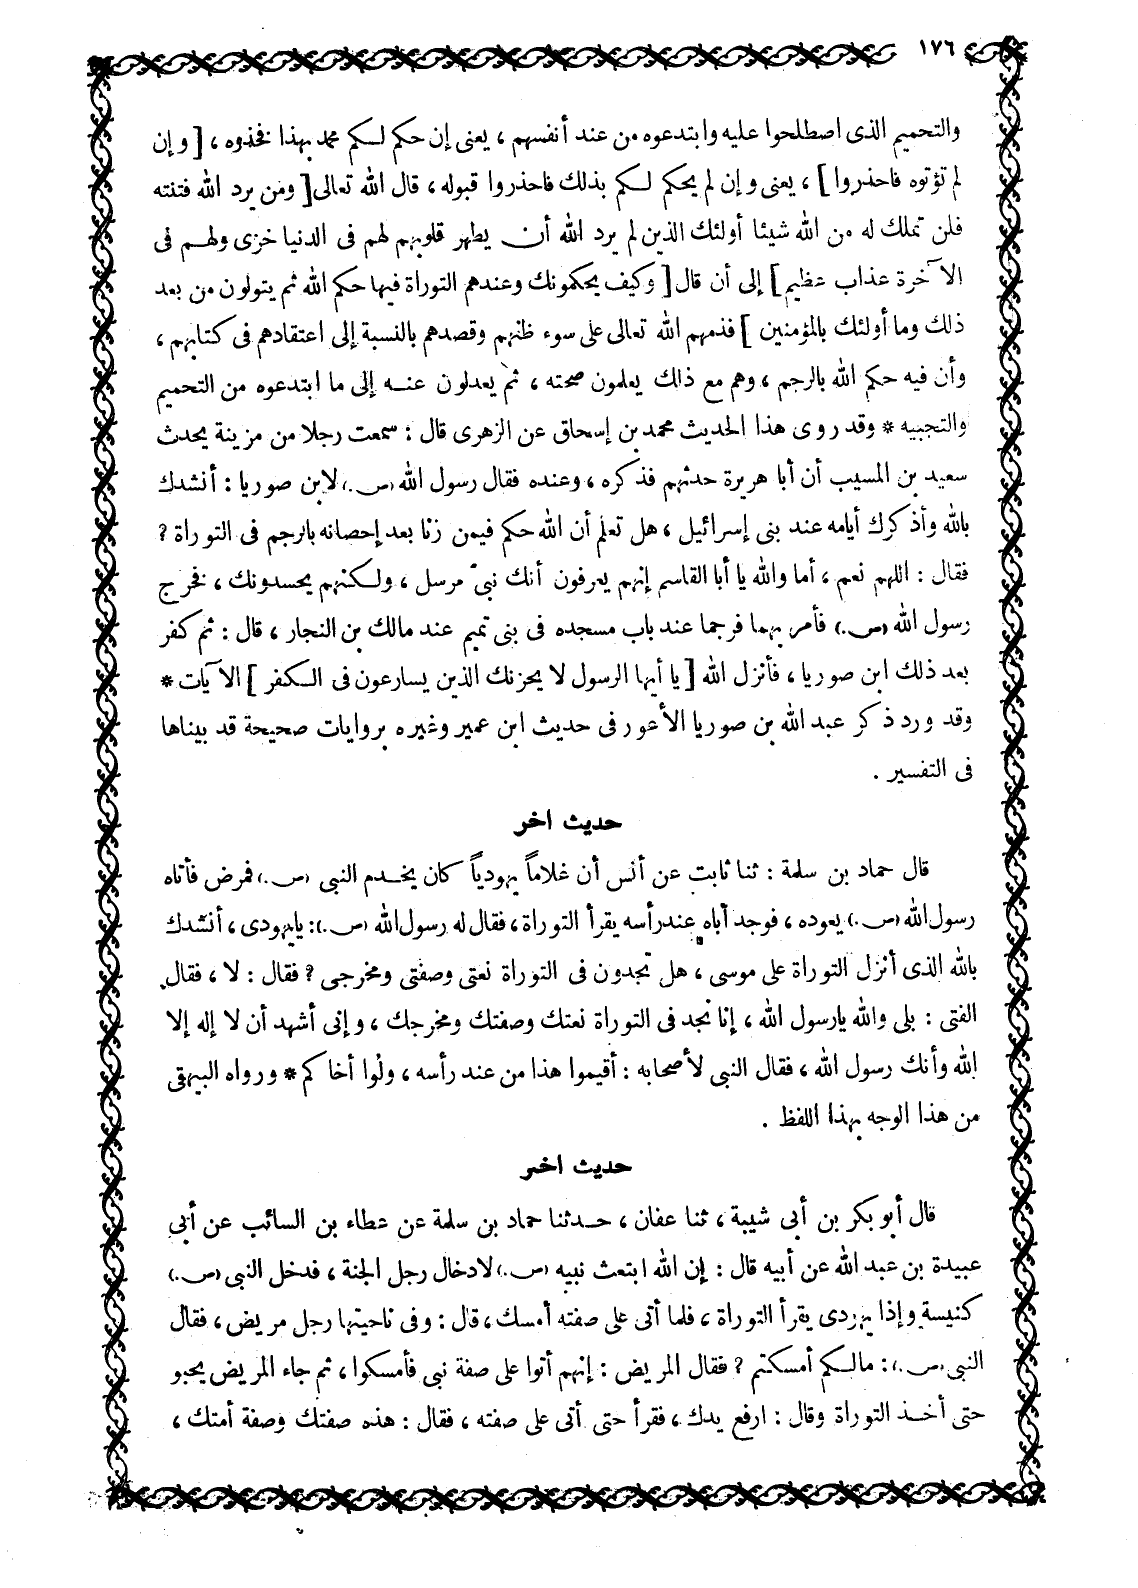 ١٧٦
والتحميم الذى اصطلحوا عليه وابتدعوه من عند أنفسهم ، يعنى إن حكم لكم محمد بهذا فخذوه ، [ وإن
لم تؤتوه فاحذروا ] ، يعنى وإن لم يحكم لكم بذلك فاحذروا قبوله ، قال الله تعالى [ ومن يرد الله فتنته
فلن تملك له من الله شيئا أولئك الذين لم يرد الله أن يطهر قلوبهم لهم فى الدنيا خزى ولهم فى
الآخرة عذاب عظيم ] إلى أن قال [ وكيف يحكمونك وعندهم التوراة فيها حكم الله ثم يتولون من بعد
ذلك وما أولئك بالمؤمنين ] فذمهم الله تعالى على سوء ظنهم وقصدهم بالنسبة إلى اعتقادهم فى كتابهم ،
وأن فيه حكم الله بالرجم ، وهم مع ذلك يعلمون صحته ، ثم يعدلون عنه إلى ما ابتدعوه من التحميم
والتجبيه * وقد روى هذا الحديث محمد بن إسحاق عن الزهرى قال : سمعت رجلا من مزينة يحدث
سعيد بن المسيب أن أبا هريرة حدثهم فذكره ، وعنده فقال رسول الله (ص.) لابن صوريا : أنشدك
بالله وأذكرك أيامه عند بنى إسرائيل ، هل تعلم أن الله حكم فيمن زنا بعد إحصانه بالرجم فى التوراة ؟
فقال : اللهم نعم ، أما والله يا أبا القاسم إنهم يعرفون أنك نبىّ مرسل ، ولكنهم يحسدونك ، فخرج
رسول الله (ص.) فأمر بهما فرجما عند باب مسجده فى بنى تميم عند مالك بن النجار ، قال : ثم كفر
بعد ذلك ابن صوريا ، فأنزل الله [ يا أيها الرسول لا يحزنك الذين يسارعون فى الكفر ] الآيات *
وقد ورد ذكر عبد الله بن صوريا الأعور فى حديث ابن عمير وغيره بروايات صحيحة قد بيناها
فى التفسير .
حديث اخر
قال حماد بن سلمة : ثنا ثابت عن أنس أن غلاماً يهودياً كان يخدم النبى (ص.) فمرض فأتاه
رسول الله (ص.) يعوده ، فوجد أباه عند رأسه يقرأ التوراة ، فقال له رسول الله (ص.) : يايهودى ، أنشدك
بالله الذى أنزل التوراة على موسى ، هل تجدون فى التوراة نعتى وصفتى ومخرجى ؟ فقال : لا ، فقال
الفتى : بلى والله يارسول الله ، إنا نجد فى التوراة نعتك وصفتك ومخرجك ، وإنى أشهد أن لا إله إلا
الله وأنك رسول الله ، فقال النبى لأصحابه : أقيموا هذا من عند رأسه ، ولُوا أخاكم * ورواه البيهقى
من هذا الوجه بهذا اللفظ .
حديث اخر
قال أبو بكر بن أبى شيبة ، ثنا عفان ، حدثنا حماد بن سلمة عن عطاء بن السائب عن أبى
عبيدة بن عبد الله عن أبيه قال : إن الله ابتعث نبيه (ص.) لادخال رجل الجنة ، فدخل النبى (ص.)
كنيسة وإذا يهودى يقرأ التوراة ، فلما أتى على صفته أمسك ، قال : وفى ناحيتها رجل مريض ، فقال
النبى (ص.) : مالكم أمسكتم ؟ فقال المريض : إنهم أتوا على صفة نبى فأمسكوا ، ثم جاء المريض يحبو
حتى أخذ التوراة وقال : ارفع يدك ، فقرأ حتى أتى على صفته ، فقال : هذه صفتك وصفة أمتك ،